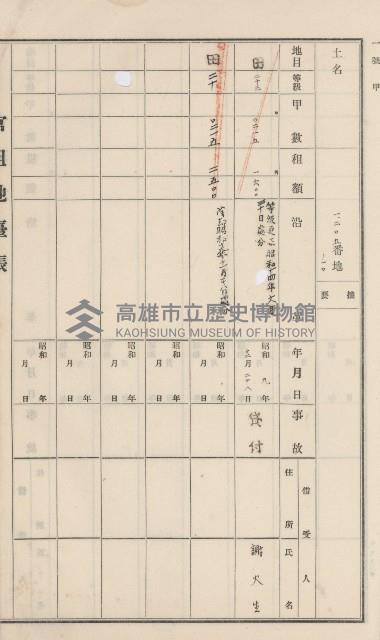 一號甲
土名
一二〇五番地
ノ一〇
摘要
地目 等級 甲數 租額 沿 年月日 事故 借受人 住所 氏名
田 二十二 〇二一五 一六〇〇
等級更正昭和十四年
十日處分
昭和 九年 十二月 二十八日 貸付
謝火生
田 二十 〇二一五 二五〇〇
昭和 年 月 日
昭和 年 月 日
昭和 年 月 日
昭和 年 月 日
官租地臺帳
高雄市立歷史博物館
KAOHSIUNG MUSEUM OF HISTORY